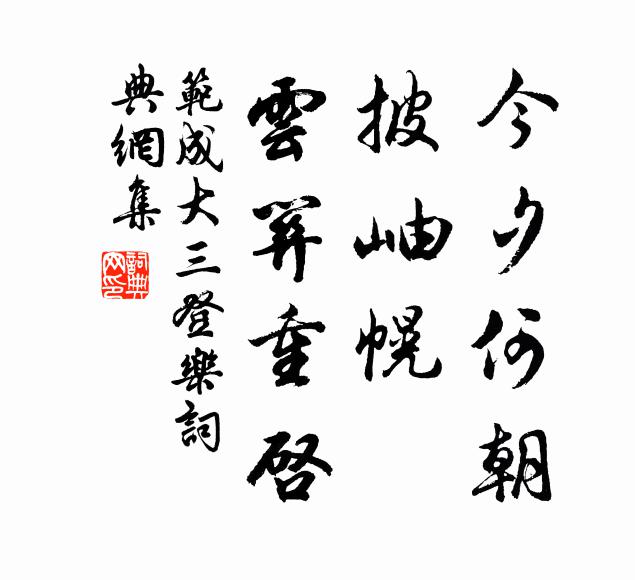 今夕何朝
披岫幌
雲關重啓
範成大三登樂詞
典網集
詞典
网印